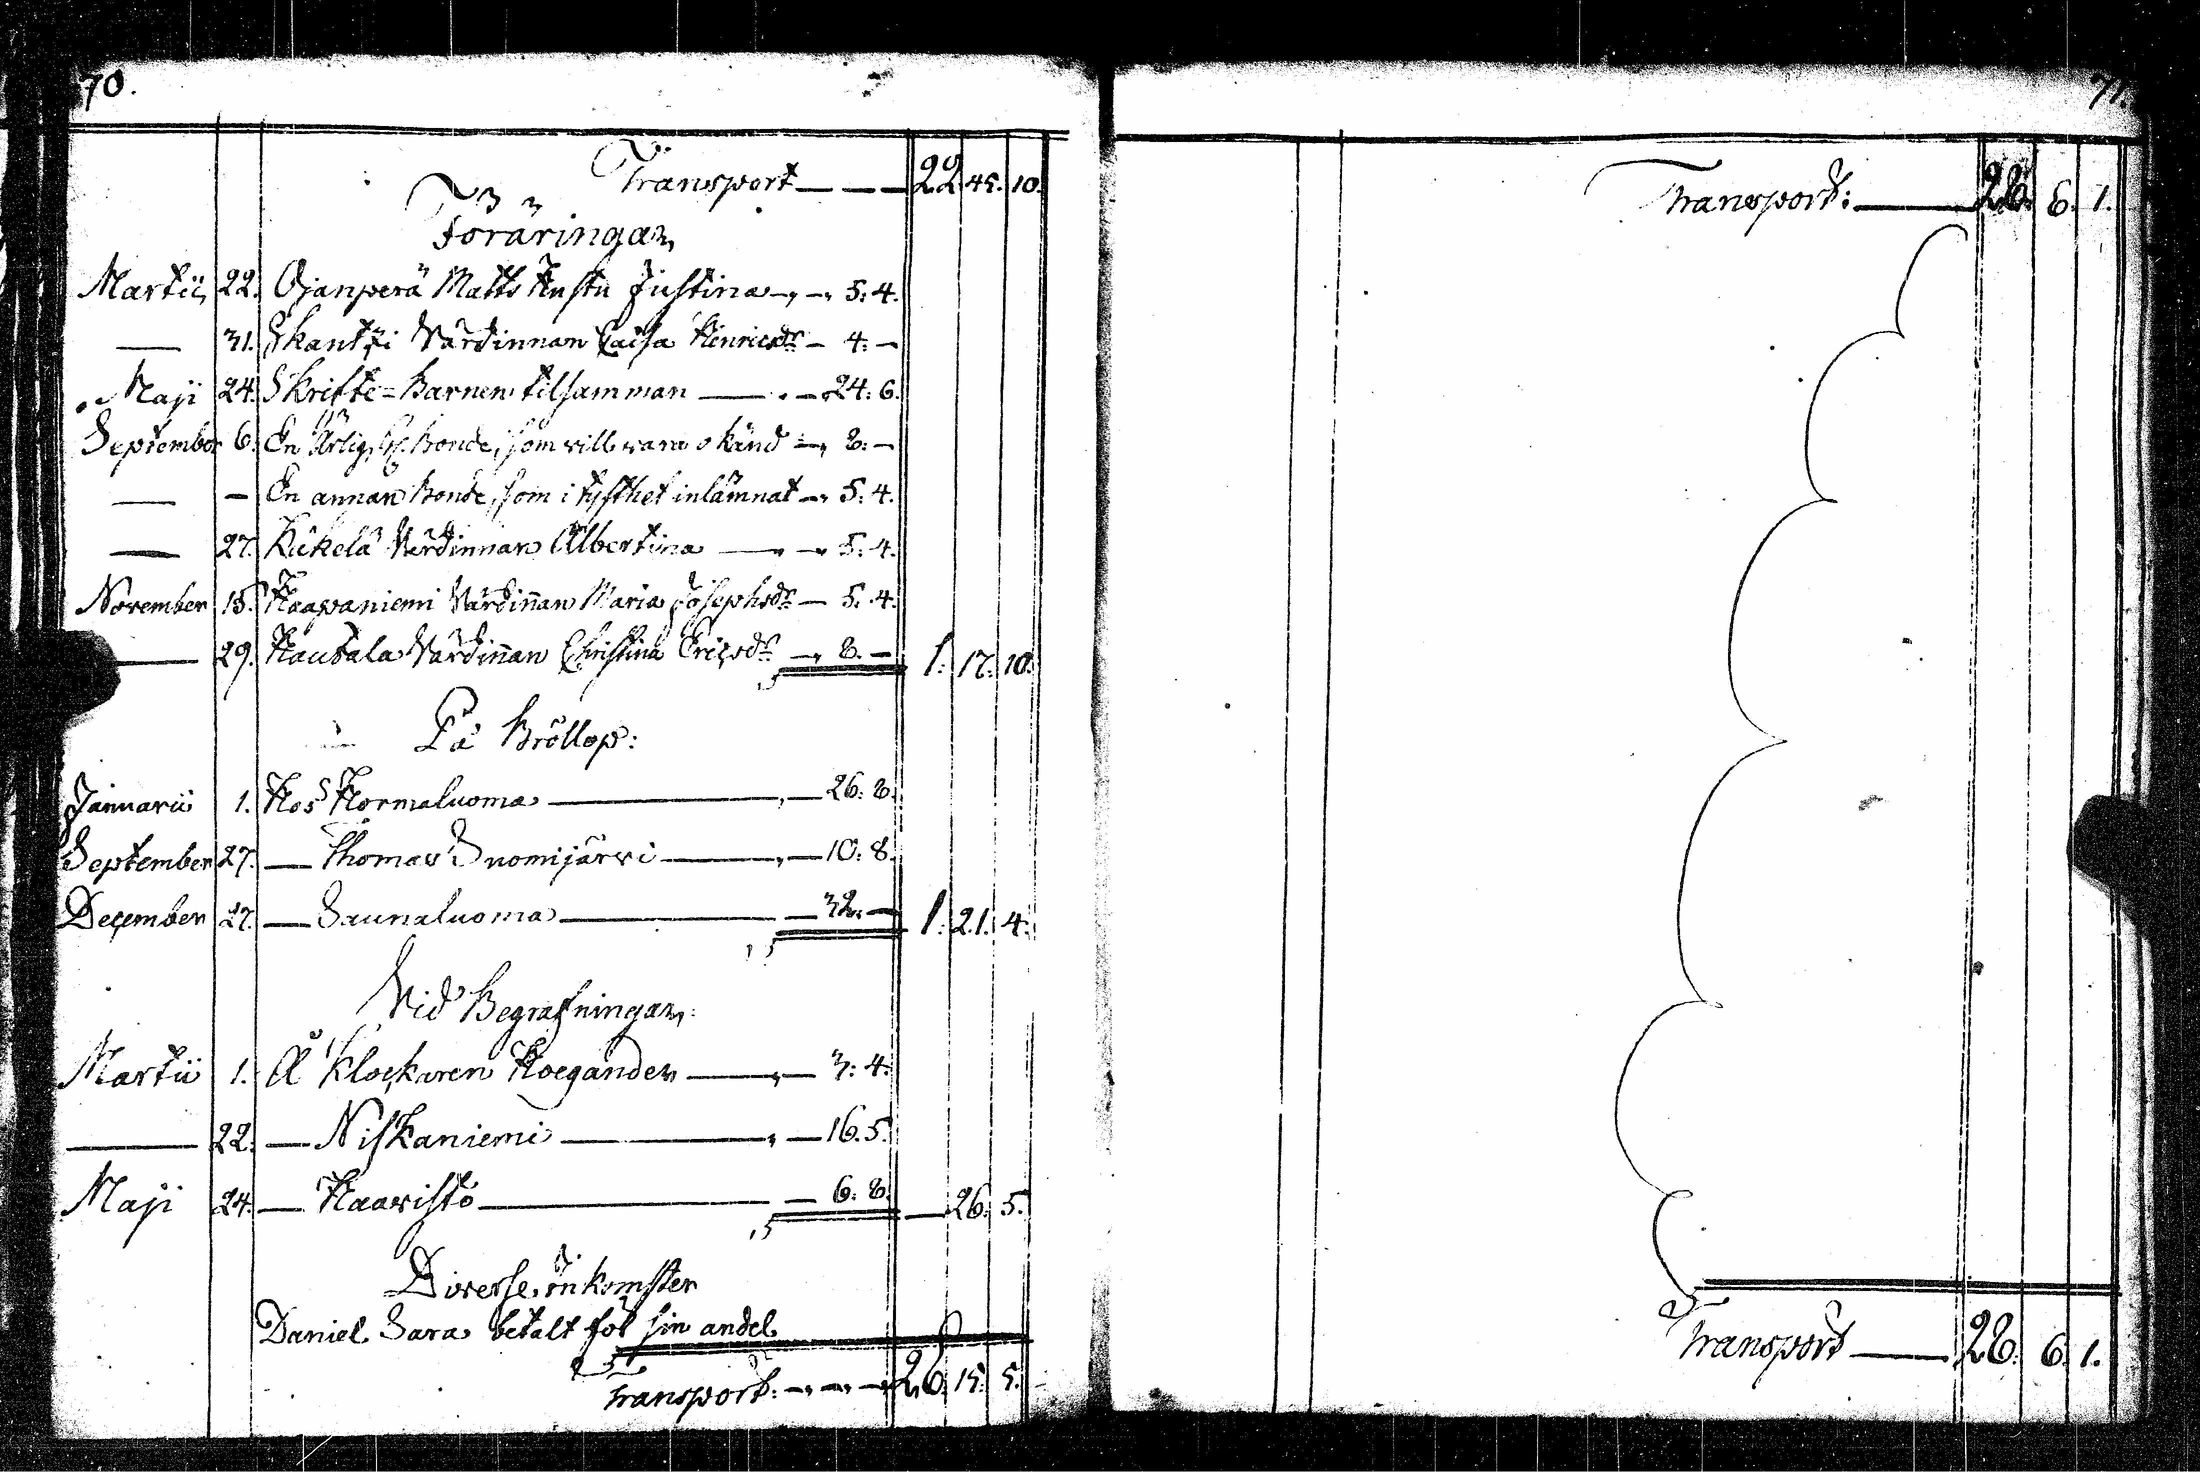 70.
Transport — — — 22. 45. 10.
Föräringar
Martii, 22. Ojanperä Matts Hustu Justina —,, —,, 5: 4.
— 31. Skantzi Värdinnan Caisa Henricsdr — 4: —
Maji 24. Skrifte=Barnen tilsamman — . — 24: 6.
September 6. En Ärlig Bonde, som vill vara okänd —,, 8: —
— — En annan Bonde, som i tysthet inlämnat —,, 5: 4.
— 27. Kükelä Värdinnan Albertina — ,, —,, 5: 4.
November 15. Haapaniemi Värdinnan Maria Josephsdr — 5. 4.
— 29. Hautala Värdinnan Christina Ericsdr —,, 8. — 1. 17. 10.
På Bröllop:
Januarii 1. Hos Hormaluoma — ,, — 26: 8.
September 27. — Thomas Suomijärvi — ,, — 10: 8.
December 27. — Saunaluoma — — 32. — 1. 21. 4.
Vid Begrafningar:
Martii 1. Å Klockaren Hoegander — ,, — 3: 4.
— 22. — Niskaniemi — ,, — 16. 5.
Maji 24. — Haavisto — — 6: 8. — 26. 5.
Diverse Inkomster
Daniel Sara betalt för sin andel
Transport: —,, —,, —,, 26. 15. 5.
71.
Transport: — 26. 6. 1.
Transport — 26. 6. 1.